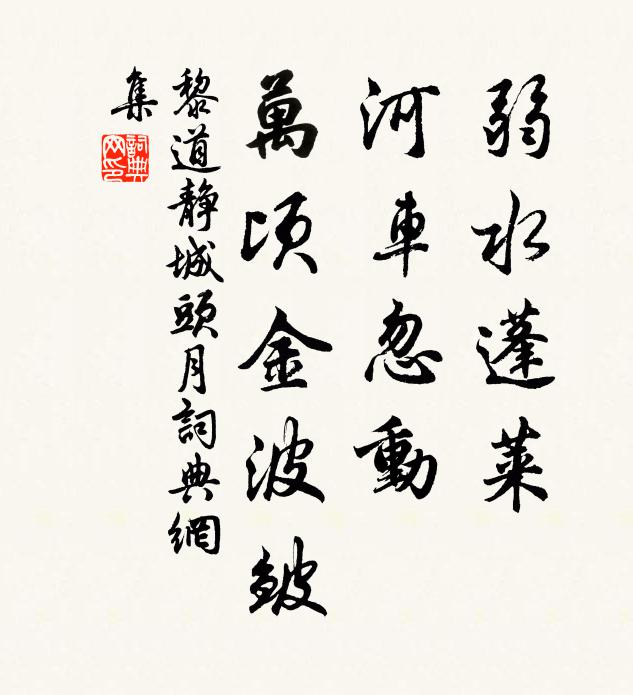 弱水蓬萊
河車忽動
萬頃金波皺
黎道靜城頭月詞典網
集
詞典
网印